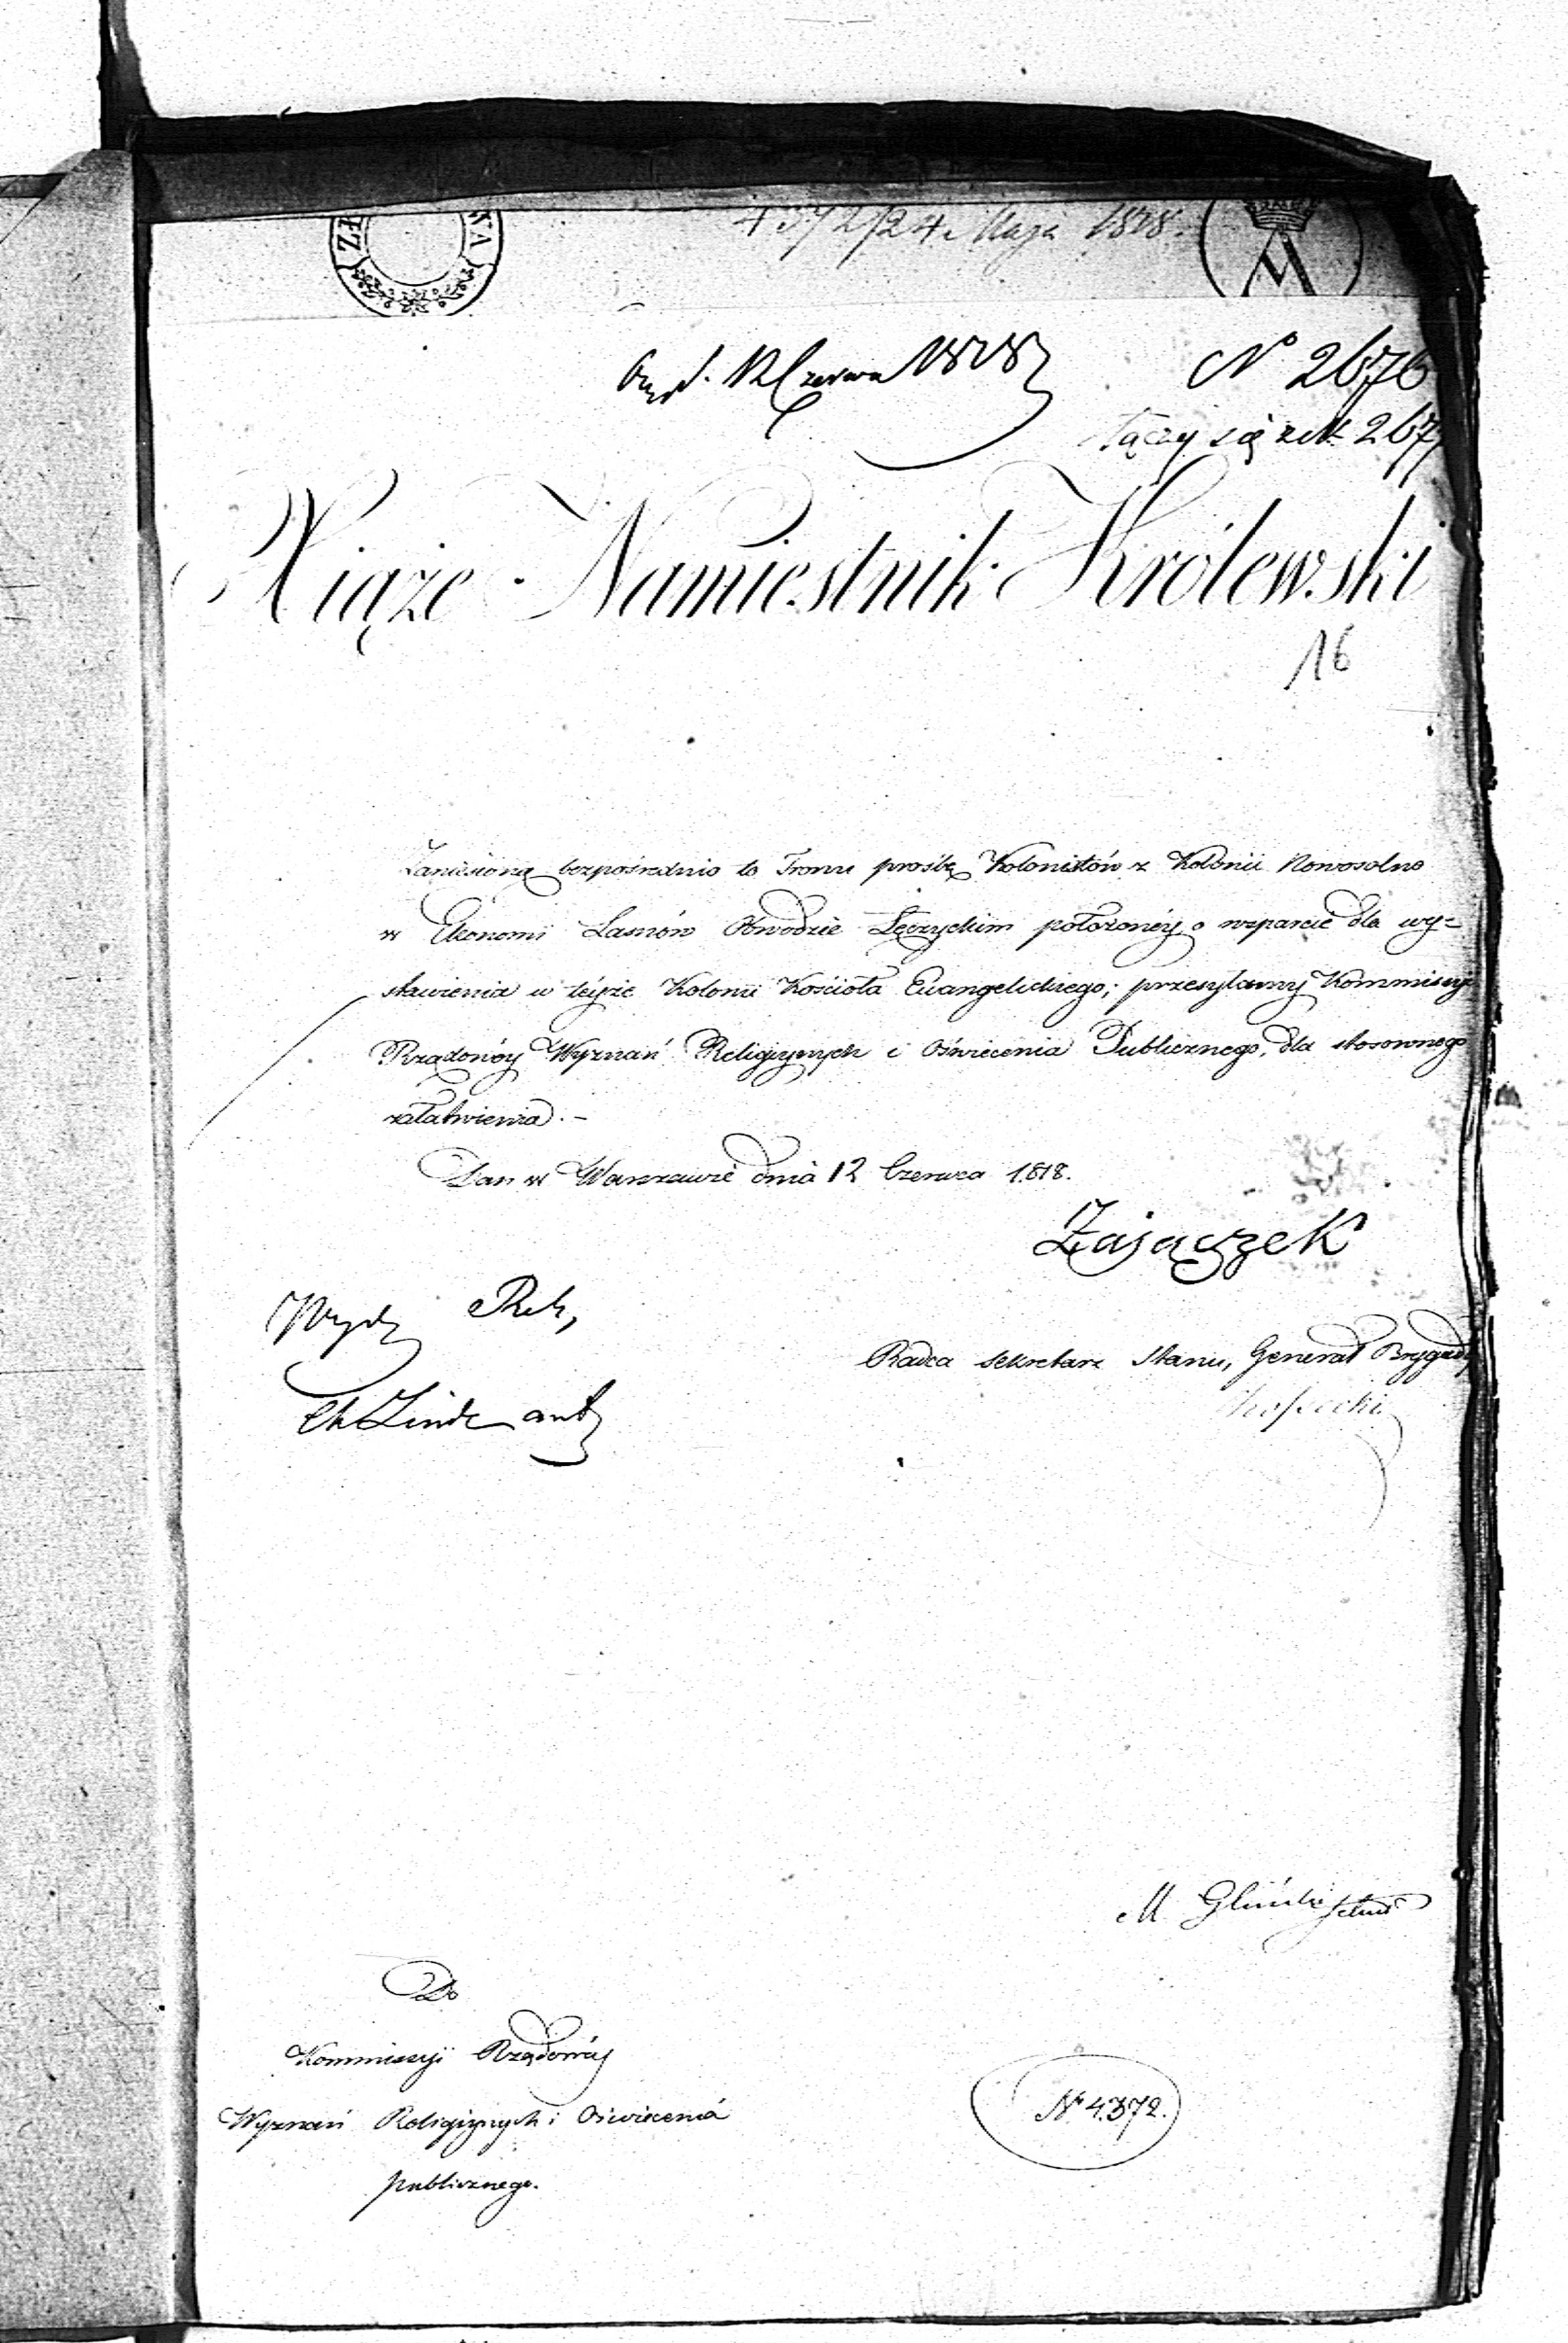 4372/24 Maja 1818.
d. 12 Czerwca 1818
No 2676
Łączy się z N 267
Xiąże Namiestnik Królewski
16
Zaniesioną bezpośrednio to Tronu prośbę Kolonistów z Kolonii Nowosolno
w Ekonomi Laznów Obwodzie Łęczyckim położonéy o wsparcie dla wy=
stawienia w téyże Kolonii Kościoła Ewangelickiego; przesyłamy Kommissyi
Rządowéy Wyznań Religiynych i Oświecenia Publicznego, dla stosownego
załatwienia. -
Dan w Warszawie dnia 12 Czerwca 1818.
Zajączek
Wydz Rel,
Linde
Radca Sekretarz Stanu, Generał Brygady
Kossecki
M. Gliński
Do
Kommissyi Rządowéy
Wyznań Religiynych i Oświecenia
publicznego.
N 4372.